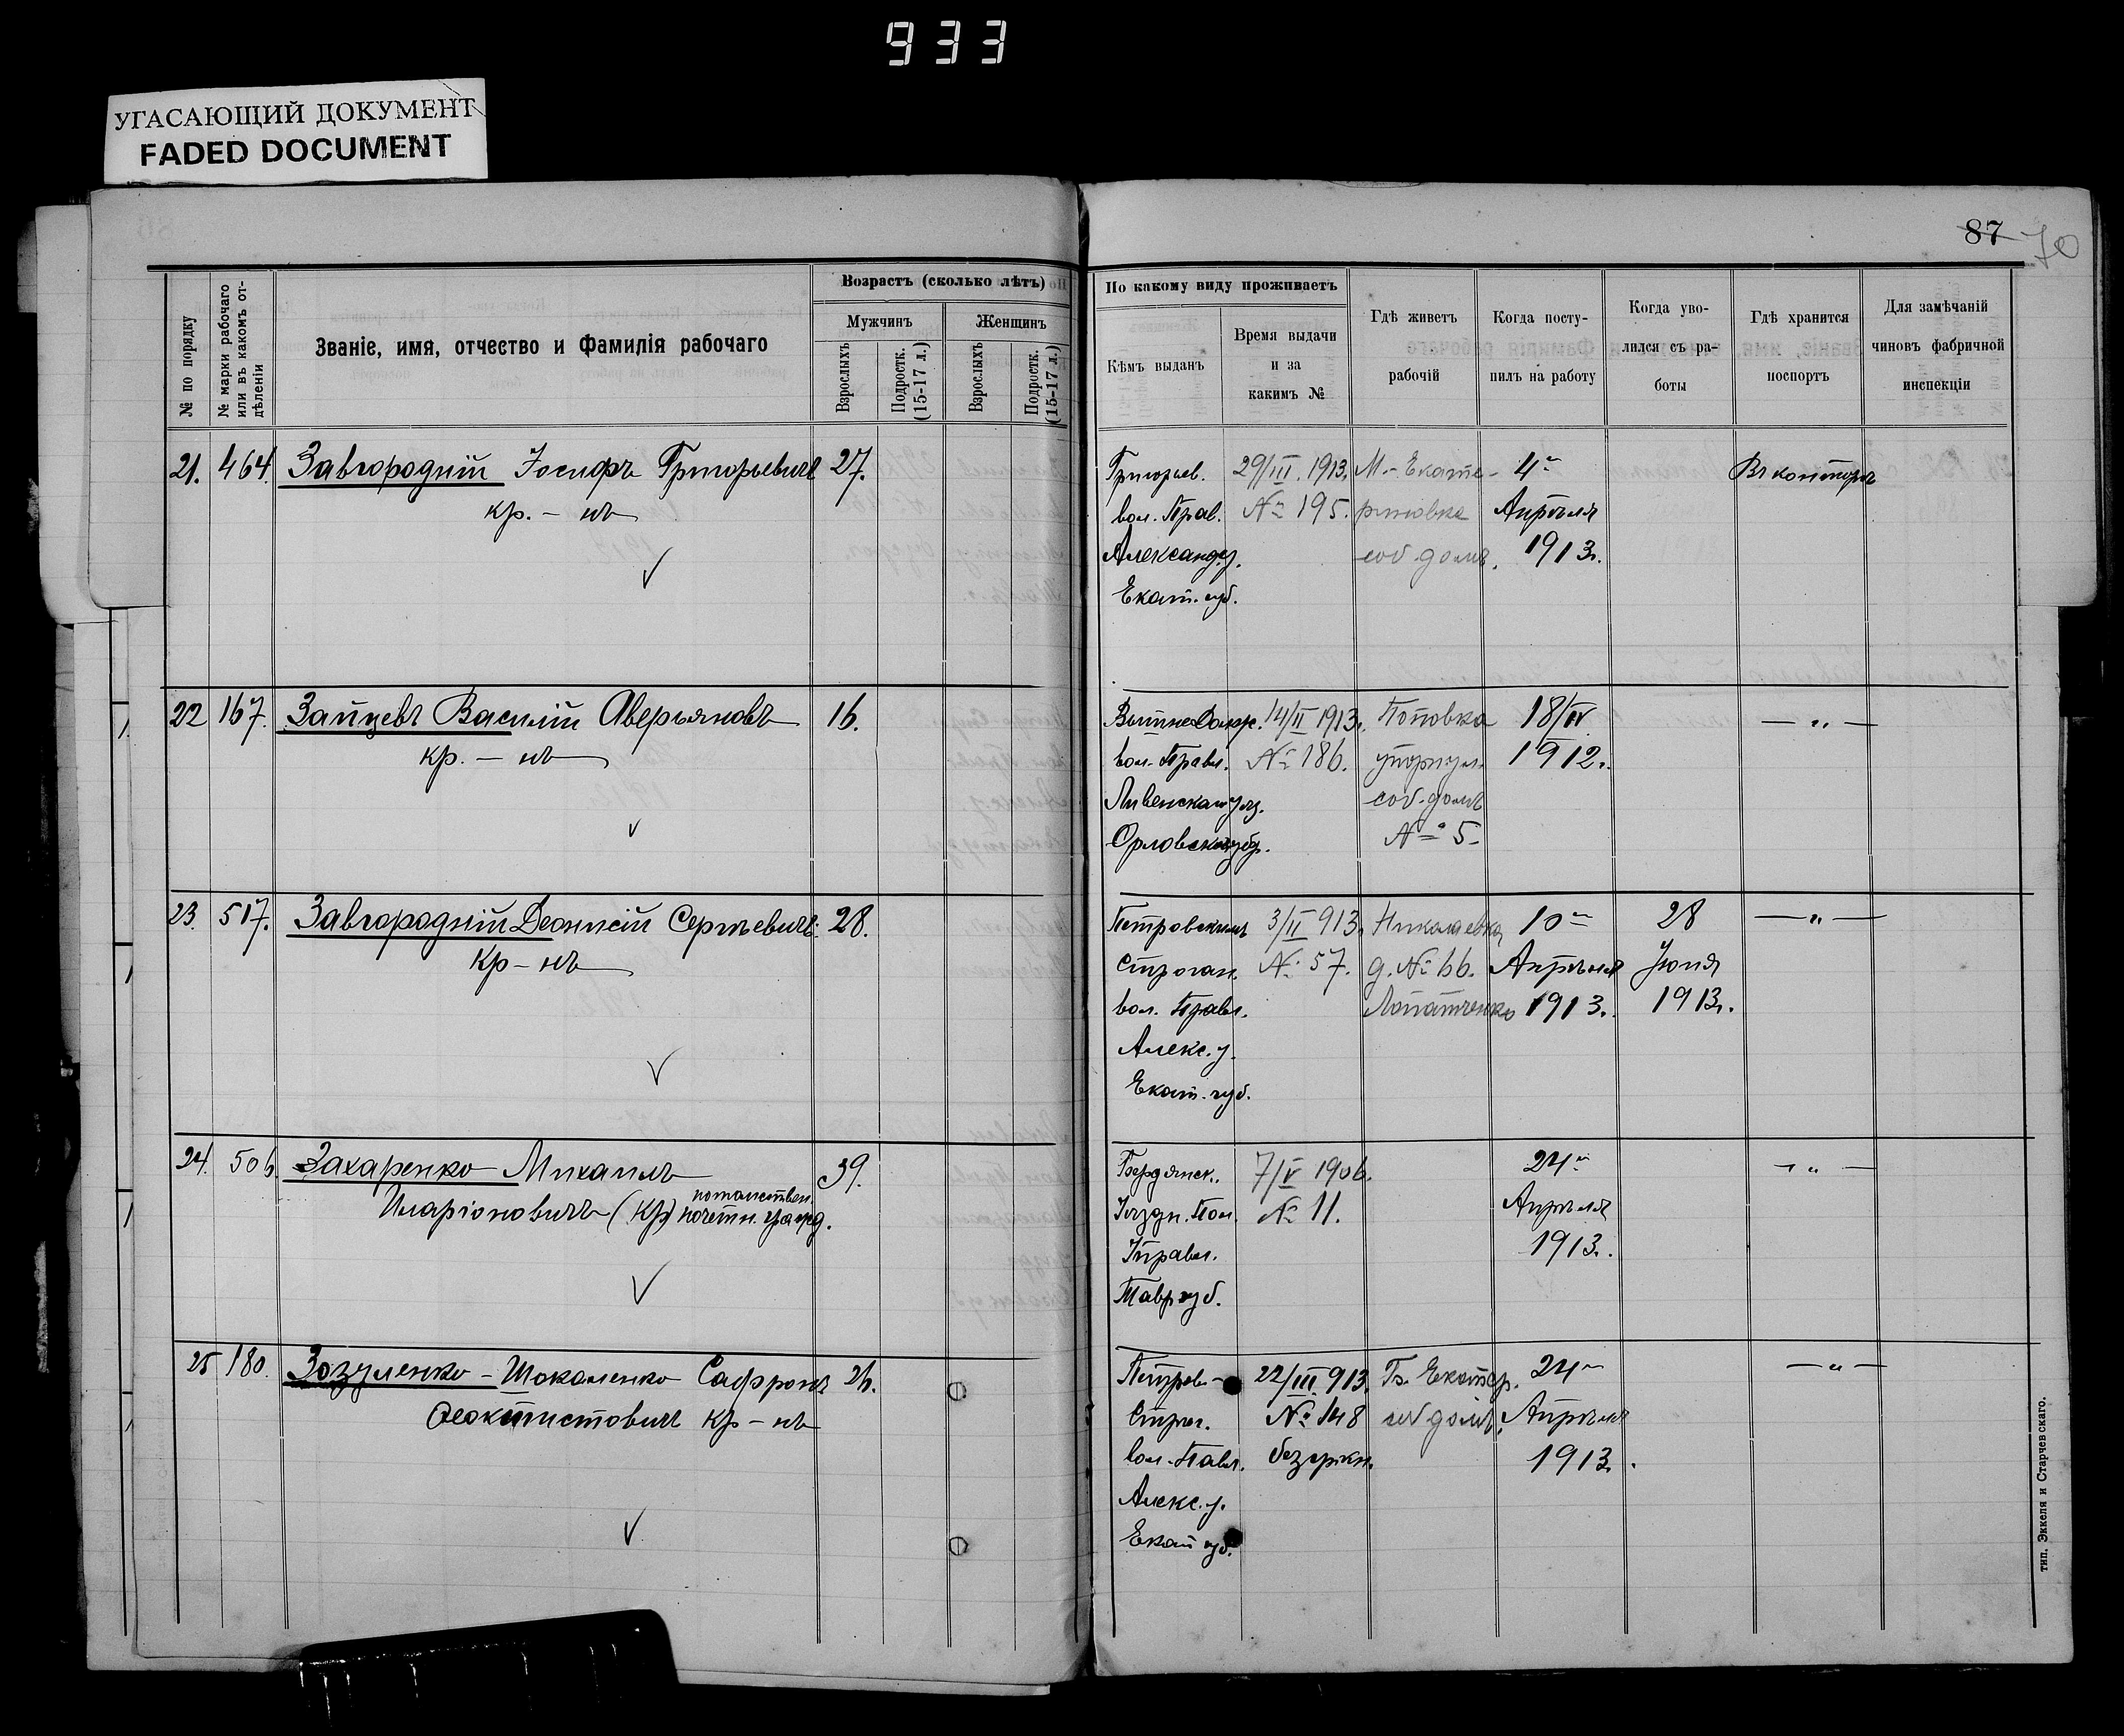 933
УГАСАЮЩИЙ ДОКУМЕНТ
FADED DOCUMENT
87 70
№ по порядку
№ марки рабочаго или въ какомъ от-дѣленіи
Званіе, имя, отчество и фамилія рабочаго
Возрастъ (сколько лѣтъ)
Мужчинъ
Женщинъ
Взрослыхъ
Подростк. (15-17 л.)
Взрослыхъ
Подростк. (15-17 л.)
По какому виду проживаетъ
Кѣмъ выданъ
Время выдачи
и за
какимъ №
Гдѣ живетъ
рабочій
Когда посту-
пилъ на работу
Когда уво-
лился съ ра-
боты
Гдѣ хранится
поспортъ
Для замѣчаній
чиновъ фабричной
инспекціи
21. 464. Завгородній Іосифъ Григорьевичъ 27.
кр. - нъ
Григорьев.
вол. Прав.
Александ. у.
Екат. губ.
29/III. 1913.
№ 195.
М.- Екате-
риновка
соб. домъ.
4го
Апрѣля
1913г.
Въ конторѣ
22 167. Зайцевъ Василій Аверьяновъ 16.
кр. - нъ
вол. Правл.
Ливенскаго уѣз.
Орловской губ.
14/II 1913г.
№ 186.
Поповка
соб. домъ
№ 5-
18/IV
1912г.
— „ —
23. 517. Завгородній Деонисій Сергѣевичъ 28.
кр-нъ
Петровскимъ
Строган.
вол. Правл.
Алекс. у.
Екат. губ.
3/II 913г.
№ 57.
Николаевка
д. № 66.
Лопатченко
10го
Апрѣля
1913г.
28
Іюня
1913г.
— „ —
24. 506 Захаренко Михаилъ 39.
Иларіоновичъ (кр) потомствен. почетн. гражд.
Бердянск.
Уѣздн. Пол.
Управл.
Тавр губ.
7/V 1906.
№ 11.
24го
Апрѣля
1913г.
— „ —
25 180. Зозуленко - Шокаленко Сафронъ 26.
Феоктистовичъ кр-нъ
Петров-
Строг.
вол. Павл.
Алекс. у.
Екат губ.
22/III. 913.
№ 148
безсрочн.
Гр. Екатер.
соб домъ.
24го
Апрѣля
1913г.
— „ —
тип. Эккеля и Старчевскаго.